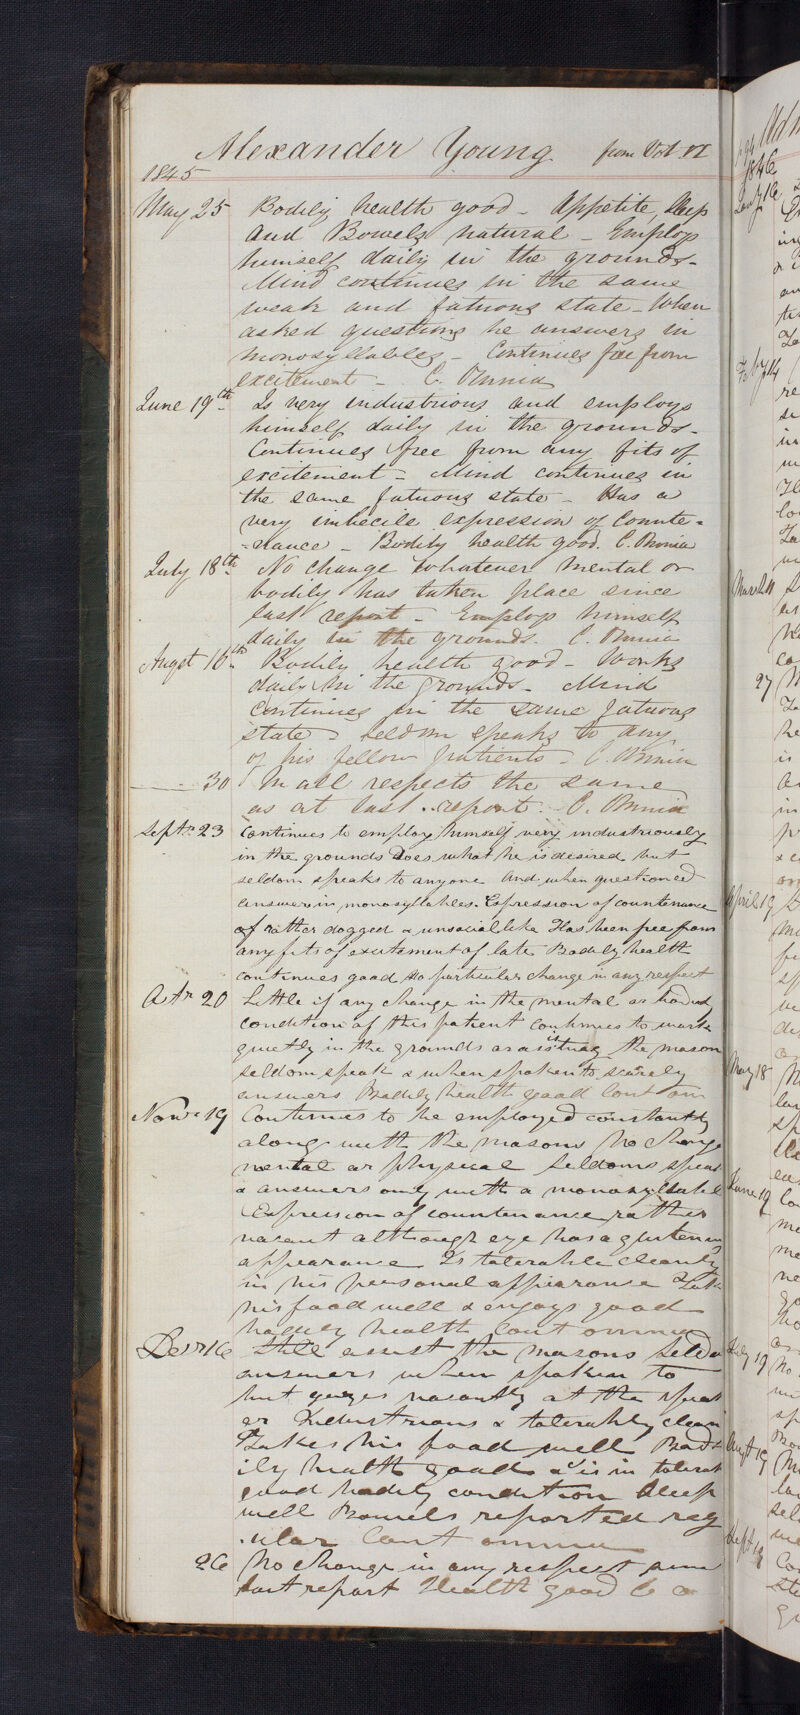 Alexander Young from Vol. VI
1845
May 25 Bodily health good - Appetite, Sleep
and Bowels natural - Employs
himself daily in the grounds -
Mind continues in the same
weak and fatuous state - When
asked questions he answers in
monosyllables - Continues free from
excitement - C. Omnia
June 19th Is very industrious and employs
himself daily in the grounds -
Continues free from any fits of
excitement - Mind continues in
the same fatuous state - Has a
very imbecile expression of Counte=
=nance - Bodily health good. C. Omnia
July 18th No change whatever mental or
bodily has taken place since
last report - Employs himself
daily in the grounds. C. Omnia
Augst 16th Bodily health good - Works
daily in the grounds - Mind
continues in the same fatuous
state - Seldom speaks to any
of his fellow patients - C. Omnia
30 In all respects the same
as at last report. C. Omnia
Septr 23 Continues to employ himself very industriously
in the grounds Does what he is desired but
seldom speaks to anyone and when questioned
answers in monosyllables. Expression of countenance
of rather dogged & unsocial like Has been free from
any fits of excitement of late Bodily health
continues good No particular change in any respect
Octr 20 Little if any change in the mental or bodily
condition of this patient Continues to work
quietly in the grounds assisting the mason
seldom speaks & when spoken to scarcely
answers Bodily health good Cont om
Novr 19 Continues to be employed constantly
along with the masons No change
mental or physical Seldoms speaks
& answers only with a monosyllable
Expression of countenance rather
vacant although eye has a glistening
appearance Is tolerable cleanly
in his personal appearance Takes
his food well & enjoys good
bodily health Cont omnia
Decr 16 Still assist the masons Seldom
answers when spoken to
but gazes vacantly at the speak
er Industrious & tolerably clean
Takes his food well Bod
ily health good & is in tolerab
good bodily condition Sleep
well Bowels reported reg
ular Cont omnia
26 No change in any respect since
last report Health good C o
1846
Jany 16
Feby 14
March 11
27
April 19
May 18
June 19
July 19
Augt 19
Sept 18